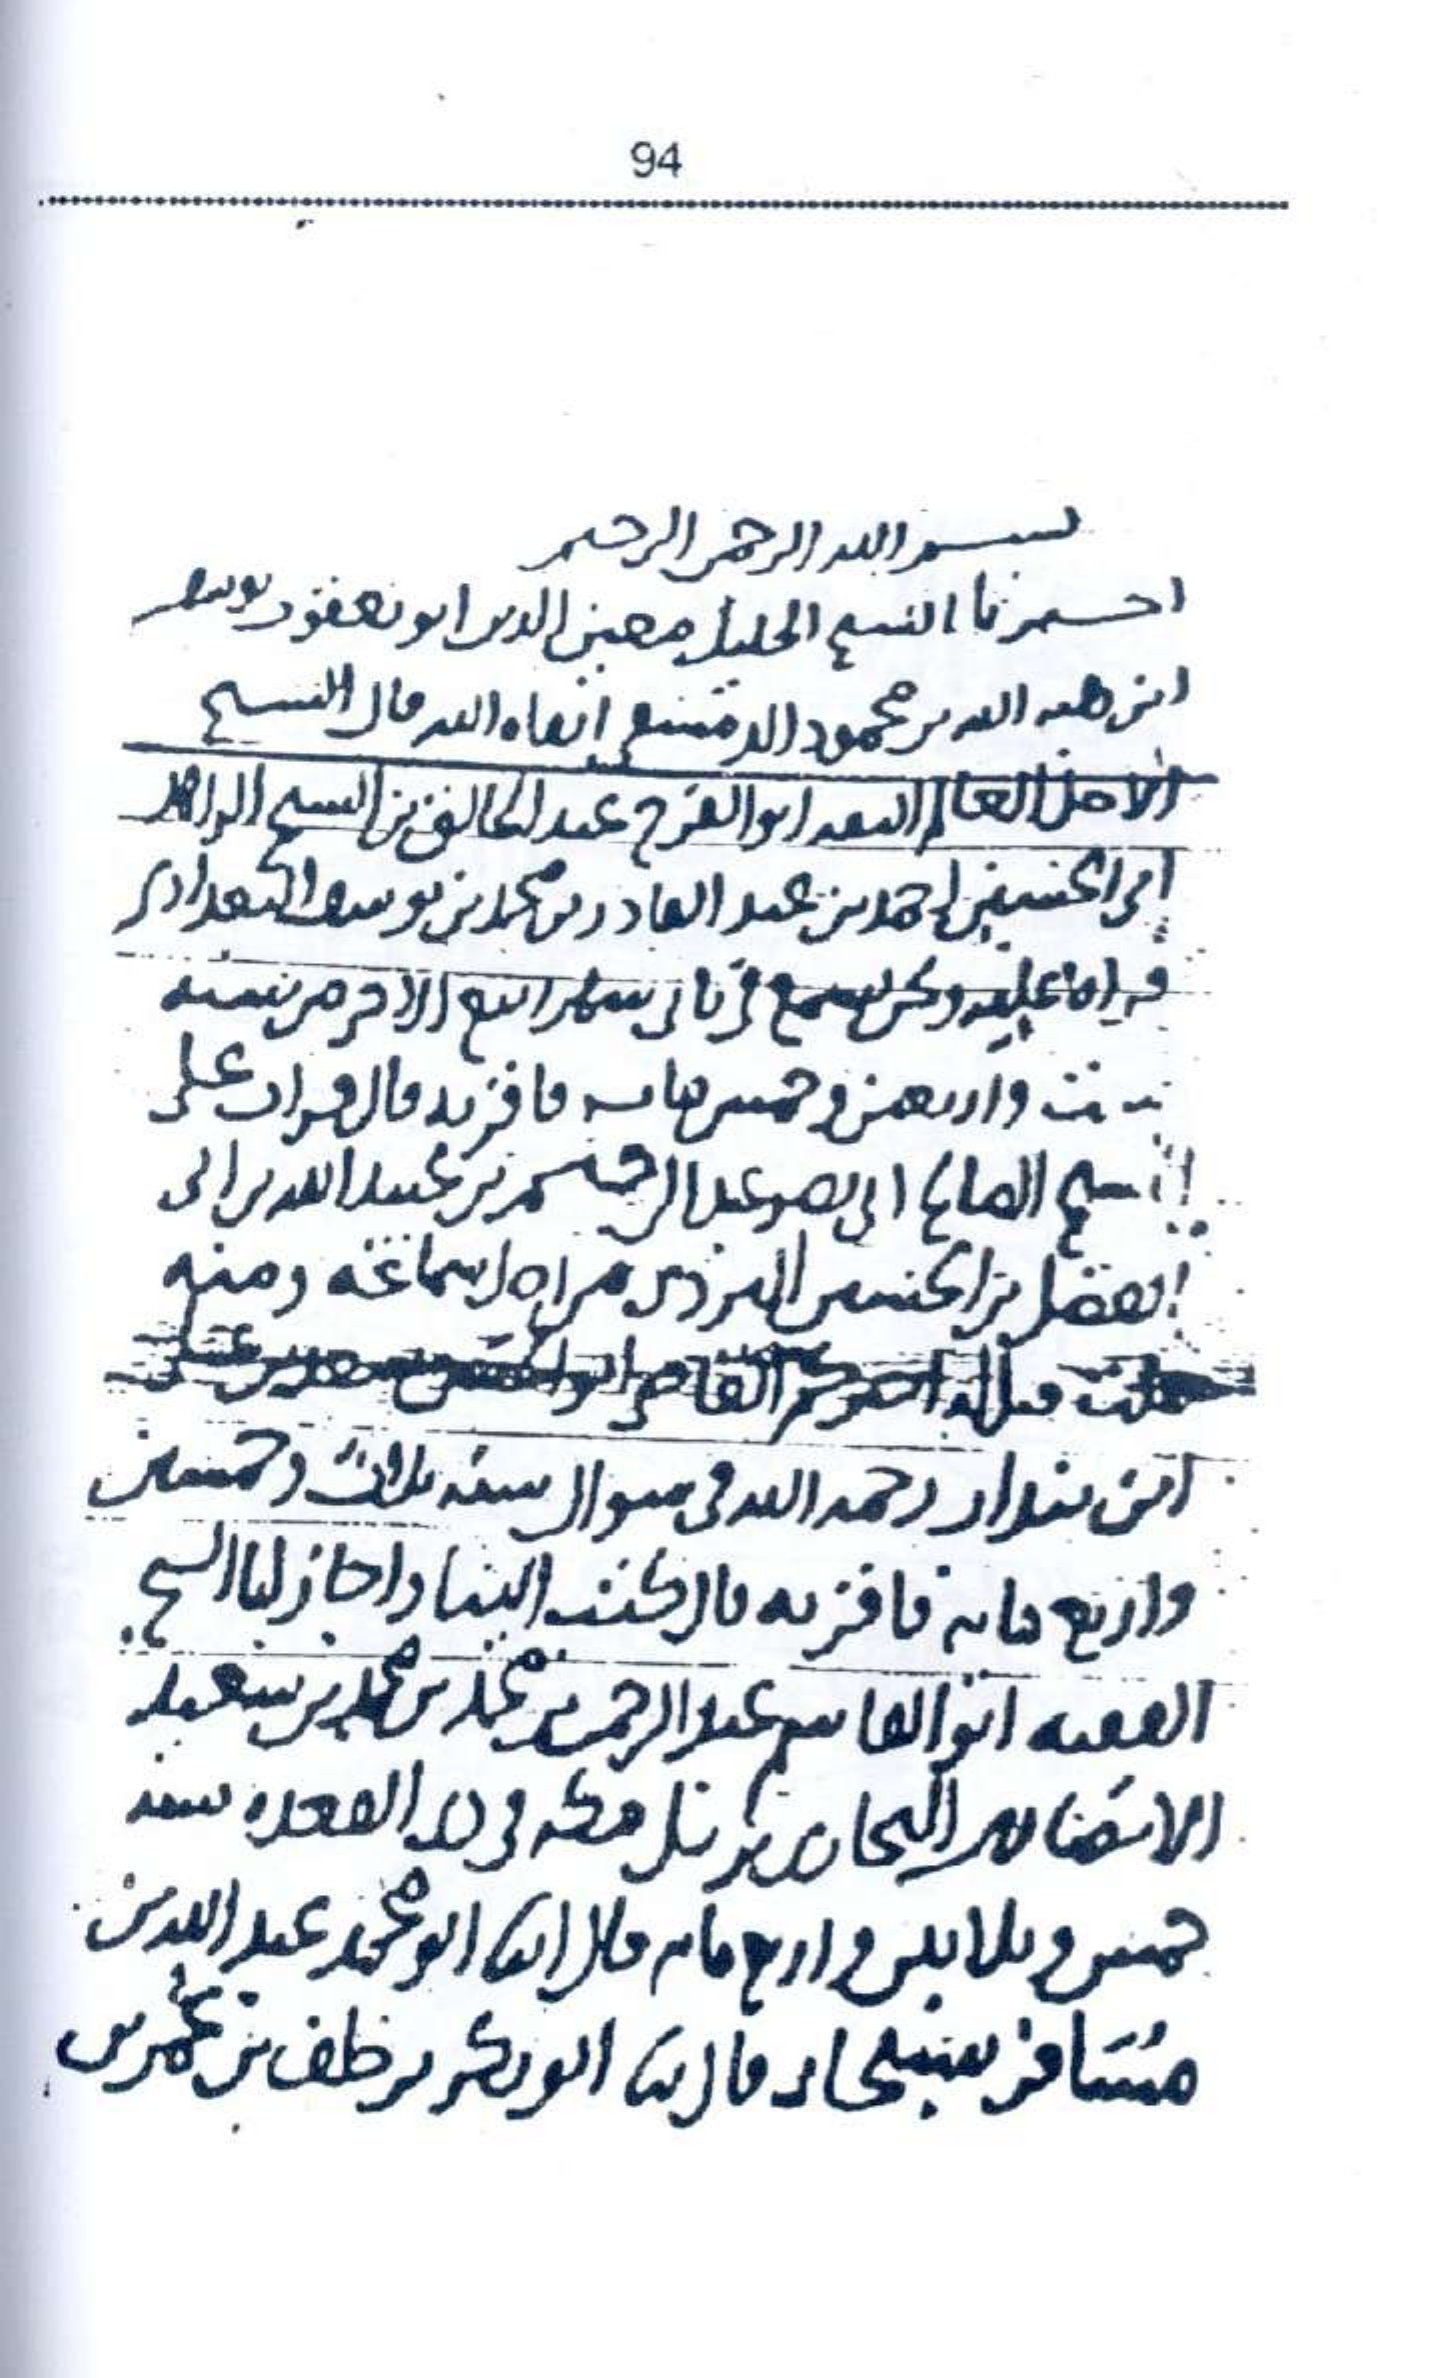 94
بسم الله الرحمن الرحيم
اخبرنا الشيخ الجليل معين الدين ابو يعقوب يوسف
ابن هبة الله بن محمود الدمشقي ابقاه الله قال الشيخ
الاجل العالم الثقه ابو الفرج عبد الخالق بن الشيخ الزاهد
ابي الحسين احمد بن عبد القادر بن محمد بن يوسف البغدادي
قراة عليه ونحن نسمع في ثاني شهر ربيع الاخر من سنه
ست واربعين وخمس مايه فاقر به قال قرات على
الشيخ الصالح ابي نصر عبد الرحيم بن عبيد الله بن ابي
الفضل بن الحسين اليزدي من اصل سماعه ومنه
نقلت قيل له اخبركم القاضي ابو
ابن بندار رحمه الله في شوال سنه ثلاث وخمسين
واربع مايه فاقر به قال كتب الينا واجاز لنا الشيخ
الفقيه ابو القاسم عبد الرحمن بن محمد بن محمد بن سعيد
الانصاري البخاري نزيل مكه في ذي القعده سنه
خمس وثلاثين واربع مايه قال انا ابو محمد عبد الله بن
مسافر قال انا ابو بكر بن خلف بن عمر بن